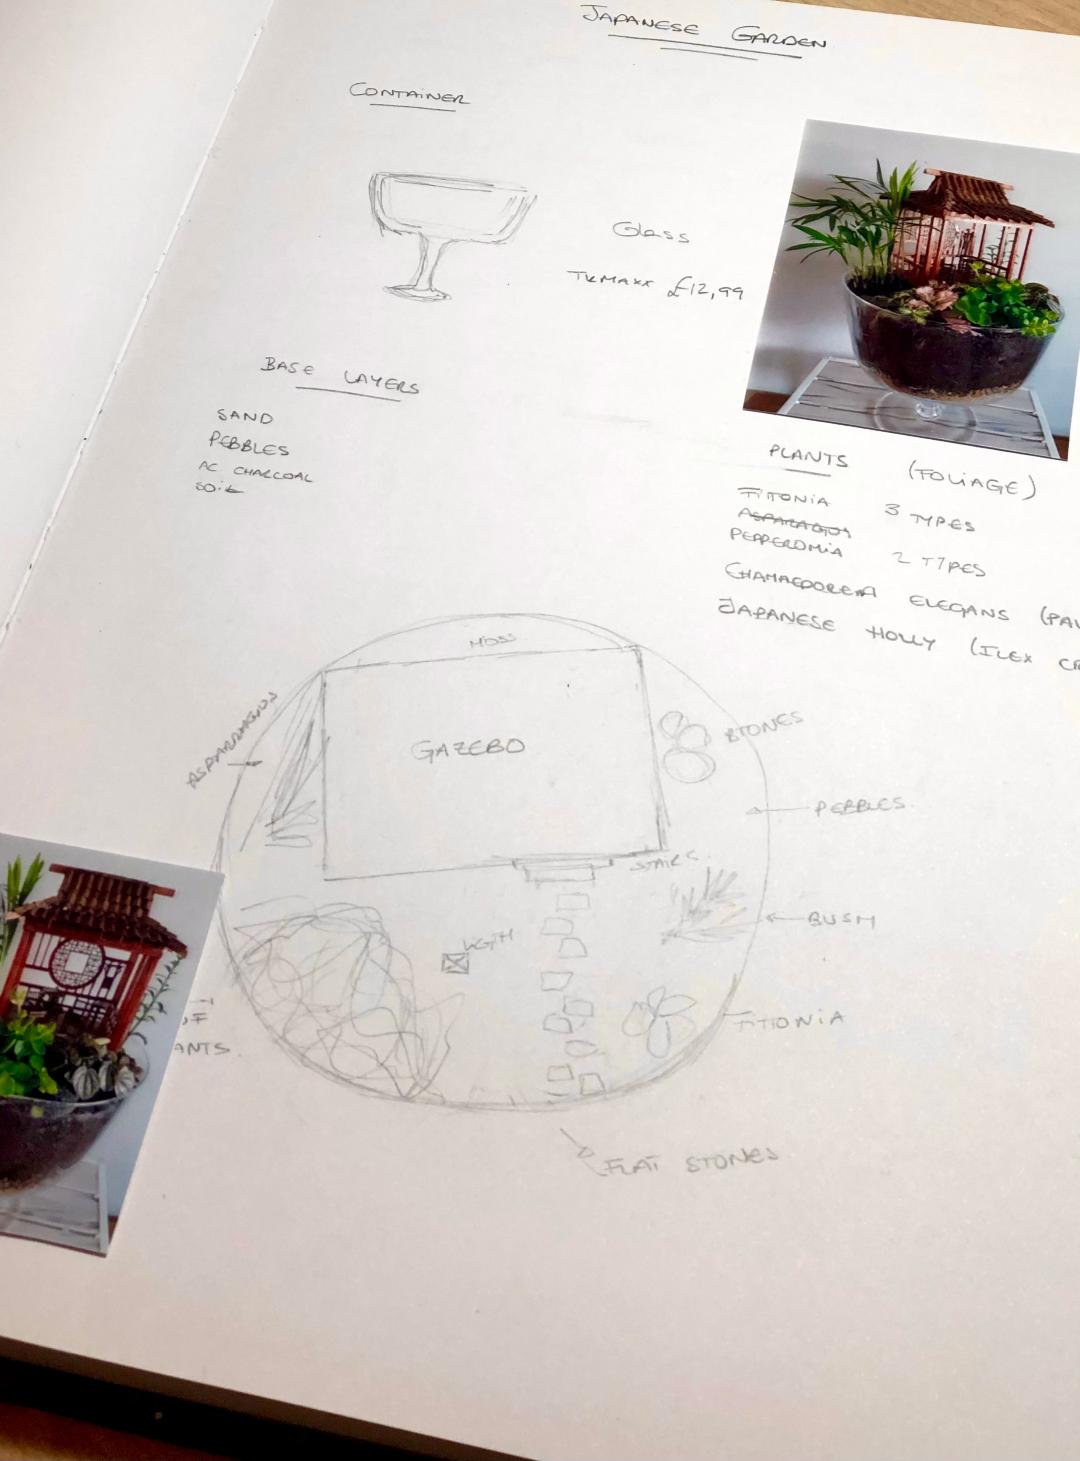 JAPANESE GARDEN
CONTAINER
Glass
TKMAXX £12,99
BASE LAYERS
SAND
PEBBLES
AC CHARCOAL
SOIL
PLANTS (FOLIAGE)
FITONIA 3 TYPES
ASPARAGUS
PEPPEROMIA 2 TYPES
CHAMAEDOREA ELEGANS (PAL
JAPANESE HOLLY (ILEX CR
MOSS
ASPARRAGUS
GAZEBO
STONES
PEBBLES
STAIRS
BUSH
LIGTH
FITIONIA
OF
ANTS
FLAT STONES